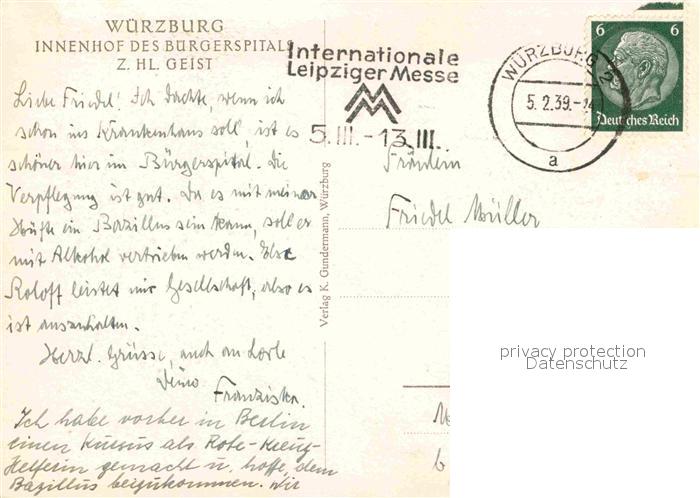 WÜRZBURG
INNENHOF DES BÜRGERSPITALS
Z. HL. GEIST
Liebe Friedel! Ich dachte, wenn ich
schon ins Krankenhaus soll, ist es
schöner hier im Bürgerspital. Die
Verpflegung ist gut. Da es mit meiner
Hüfte ein Bazillus sein kann, soll er
mit Alkohol vertrieben werden. Else
Roloff leistet mir Gesellschaft, also es
ist auszuhalten.
Herzl. Grüsse, auch an Lorle
Deine
Franziska.
Ich habe vorher in Berlin
einen Kursus als Rote-Kreuz-
Helferin gemacht u. hoffe, dem
Bazillus beizukommen. Wir
Verlag K. Gundermann, Würzburg
Internationale
Leipziger Messe
MM
5.III.-13.III.
WÜRZBURG 2
5.2.39.-14
a
6 6
Deutsches Reich
Fräulein
Friedel Müller
privacy protection
Datenschutz